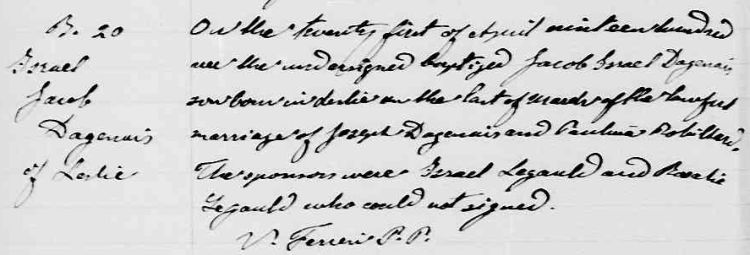 B. 20
Israel
Jacob
Dagenais
of Leslie
On the twenty first of April nineteen hundred
we the undersigned baptized Jacob Israel Dagenais
son born in Leslie on the last of March of the lawful
marriage of Joseph Dagenais and Paulina Robillard.
The sponsors were Israel Legauld and Rosalie
Legauld who could not signed.
V. Ferreri P. P.